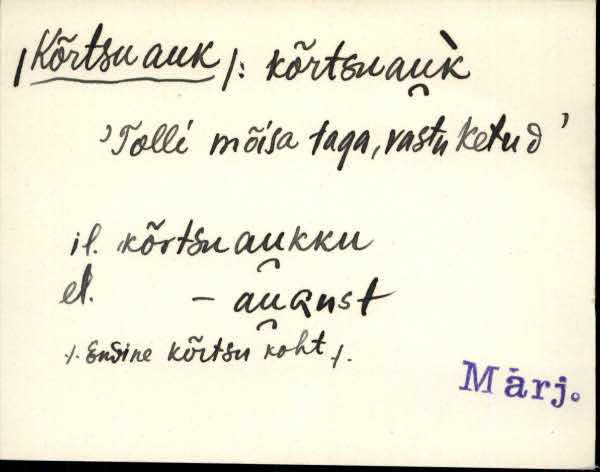 /Kõrtsu auk/: kõrtsuau̯k̀
'Tolli mõisa taga, vastu Ketud'
il. kõrtsuau̯kku
el. – au̯gust
/. Endine kõrtsu koht./
Märj.